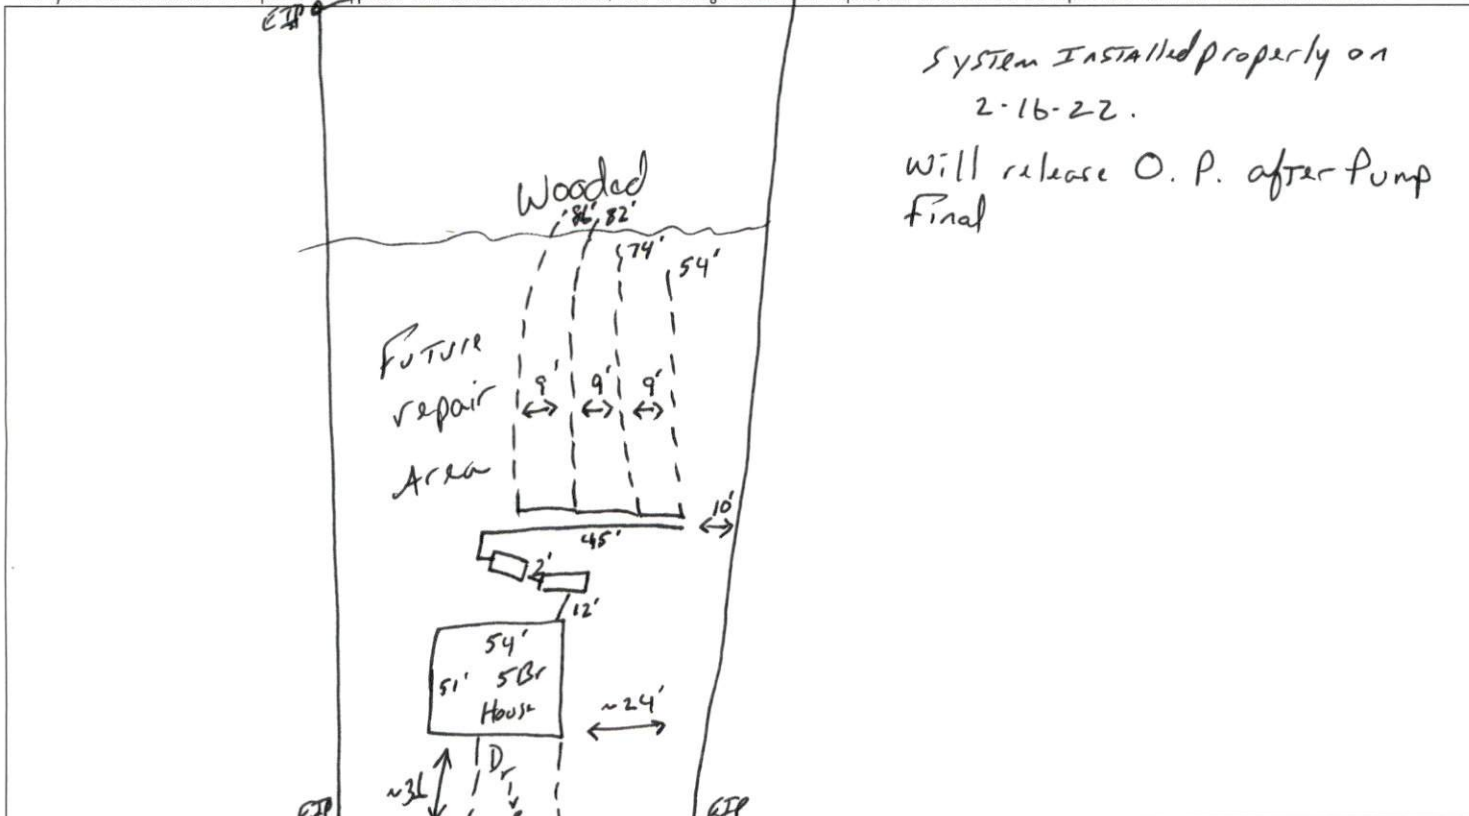 EIP
System Installed properly on
2-16-22.
Will release O. P. after Pump
Final
Wooded
86' 82'
74'
54'
Future
repair
Area
9' 9' 9'
10'
45'
2'
12'
54'
51' 5Br
House
~24'
Dr
EIP EIP